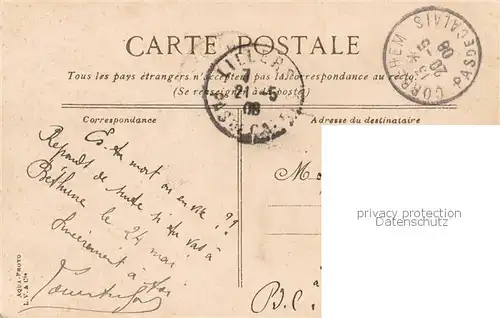 CARTE POSTALE
Tous les pays étrangers n'acceptent pas la correspondance au recto
(Se renseigner à la poste)
Correspondance
Adresse du destinataire
Es-tu mort ou en vie ??
Réponds de suite si tu vas à
Béthune le 24 mai
Sincèrement à toi
LILLERS
7
21 -5
08
PAS-DE-CALAIS
13
20 5
08
PAS DE CALAIS
privacy protection
Datenschutz
B.C.
AQUA-PHOTO
L.V. &